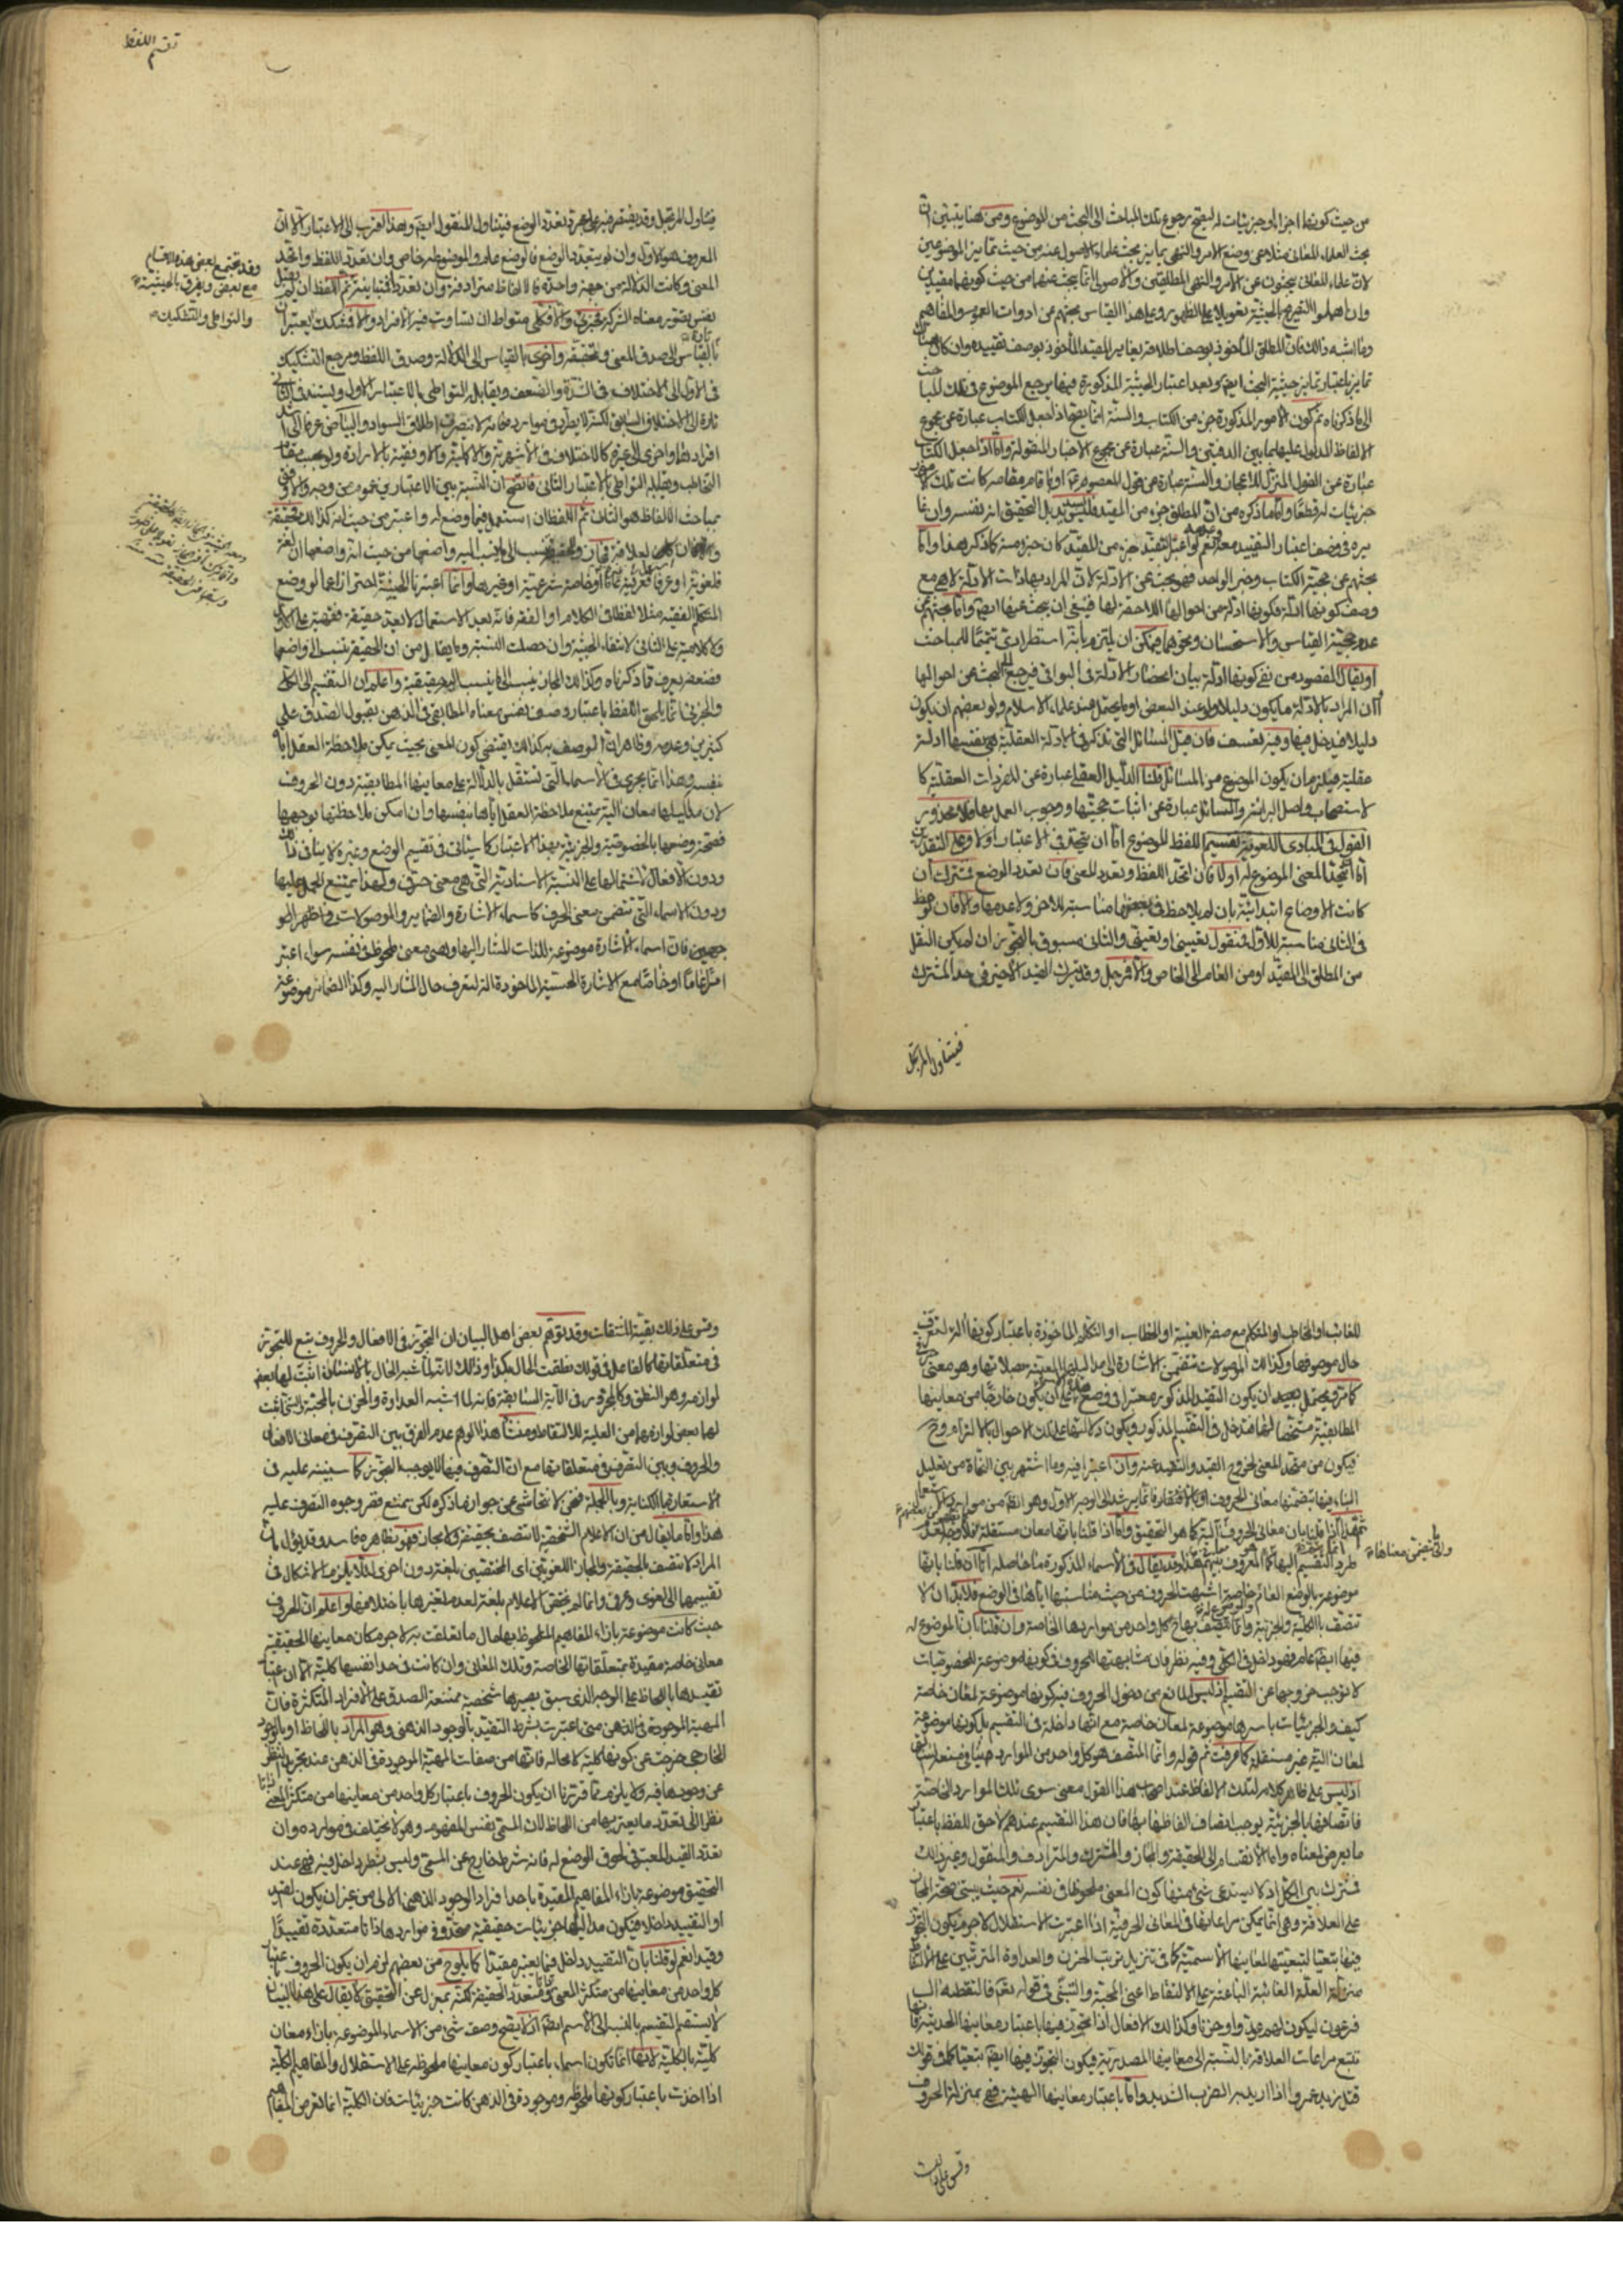 من حيث كونها اجزاء او جزئيات له ليصح رجوع تلك المباحث الى البحث من الموضوع ومن هنا يتبين ان
بحث العلماء المعانى مثلا عن وضع الامر والنهى يمايز بحث علماء الاصول عنه من حيث تمايز الموضوعين
لان علماء المعانى يبحثون عن الامر والنهى المطلقين والاصولى انما يبحث عنهما من حيث كونهما مقيدين
وان اهملوا التصريح بالحيثية تعويلا على الظهور وعلى هذا القياس بحثهم عن ادوات العموم والمفاهيم
وما اشبه ذلك فان المطلق المأخوذ بوصف اطلاقه يغاير المقيد المأخوذ بوصف تقييده وان كان هناك
تمايز باعتبار تمايز حيثية البحث ايضا وبعد اعتبار الحيثية المذكورة فيها يرجع الموضوع فى تلك المباحث
الى ما ذكرناه ثم كون الامور المذكورة جزء من الكتاب والسنة انما يصح اذا جعل الكتاب عبارة عن مجموع
الالفاظ المدلول عليها بما بين الدفتين والسنة عبارة عن مجموع الاخبار المنقولة واما اذا جعل الكتاب
عبارة عن القول المنزل للاعجاز والسنة عبارة عن قول المعصوم او ما قام مقامه كانت تلك الامور
جزئيات له قطعا واما ما ذكره من ان المطلق جزء من المقيد فليس بسديد بل التحقيق انه نفسه وان غا
يره فى وصف اعتبار التقييد معه وعدمه نعم لو اعتبر التقييد جزء من المقيد كان جزء منه كما ذكر هذا واما
بحثهم عن حجية الكتاب وخبر الواحد فهو بحث عن الادلة لان المراد بها ذات الادلة لا هى مع
وصف كونها ادلة فكونها ادلة من احوالها اللاحقة لها فينبغى ان يبحث عنها ايضا واما بحثهم عن
عدم حجية القياس والاستحسان ونحوهما فيمكن ان يلتزم بانه استطرادى تتميما للمباحث
او يقال المقصود من نفى كونها ادلة بيان انحصار الادلة فى البواقى فيرجع الى البحث عن احوالها
او ان المراد بالادلة ما يكون دليلا ولو عند البعض او ما يحتمل عند علماء الاسلام ولو بعضهم ان يكون
دليلا فيدخل فيها وفيه تعسف فان قيل المسائل التى تذكر فى الادلة العقلية هى بنفسها ادلة
عقلية فيلزم ان يكون الموضوع من المسائل قلنا الدليل العقلى عبارة عن المفردات العقلية كا
لاستصحاب واصل البرائة والمسائل عبارة عن اثبات حجيتها ووجوب العمل بها فلا محذور
القول فى المبادى اللغوية تقسيم اللفظ الموضوع اما ان يتحد فى الاعتبار اولا وعلى التقديرين
اما يتحد المعنى الموضوع له اولا فان اتحد اللفظ وتعدد المعنى فان تعدد الوضع فمشترك ان
كانت الاوضاع ابتدائية بان لم يلاحظ فى بعضها مناسبة للاخر ولا عدمها والا فان لوحظ
فى الثانى مناسبة للاول فمنقول تعيينى او تعينى والثانى مسبوق بالتجوز ان لم يكن النقل
من المطلق الى المقيد او من العام الى الخاص والا فمرتجل وقد يترك القيد الاخير فى حد المشترك
فيتناول المرتجل
تقسيم اللفظ
فيتناول المرتجل وقد يقتصر فيه على مجرد تعدد الوضع فيتناول المنقول ايضا وهذا اقرب الى الاعتبار الا ان
المعروف هو الاول وان لم يتعدد الوضع فالوضع عام والموضوع له خاص وان تعدد اللفظ واتحد
المعنى وكانت الدلالة من جهة واحدة فالالفاظ مترادفة وان تعددا فتباينة ثم اللفظ ان لم يقبل
نفس تصور معناه الشركة فجزئى والا فكلى متواطئ ان تساوت فيه الافراد والا فمشكك ويعتبران
تارة بالقياس الى صدق المعنى وتحققه واخرى بالقياس الى الدلالة وصدق اللفظ ومرجع التشكيك
فى الاول الى الاختلاف فى الشدة والضعف ويقابل التواطى بالاعتبار الاول ويستند فى الثانى
التخاطب ويقابله التواطى بالاعتبار الثانى فاتضح ان النسبة بين الاعتبارين عموم من وجه والاوفق
بمباحث الالفاظ هو الثانى ثم اللفظ ان استعمل فيما وضع له واعتبر من حيث انه كذلك فحقيقة
فلغوية او عرفا فعرفية عامة او خاصة شرعية او غيرها وانما اعتبرنا الحيثية احترازا عما لو وضع
المتكلم الفقيه مثلا لفظا فى الكلام او الفقه فانه بعد الاستعمال لا يعد حقيقة فقهية على الاول
ولا كلامية على الثانى لانتفاء الحيثية وان حصلت النسبة وما يقال من ان الحقيقة تنسب الى واضعها
فضعفه يعرف مما ذكرناه وكذلك المجاز ينسب الى ما ينسب اليه حقيقته واعلم ان التقسيم الى الكلى
والجزئى انما يلحق اللفظ باعتبار وصف نفس معناه المطابقى فى الذهن بقبول الصدق على
كثيرين وعدمه وظاهر ان الوصف بذلك يقتضى كون المعنى بحيث يمكن ملاحظة العقل اياه
بنفسه وهذا انما يجرى فى الاسماء التى تستقل بالدلالة على معانيها المطابقية دون الحروف
لان مداليلها معان آلية يمتنع ملاحظة العقل اياها بنفسها وان امكن ملاحظتها بوجهها
فصحة وضعها بالخصوصية والجزئية بهذا الاعتبار كما سيأتى فى تقسيم الوضع وغيره لا ينافى ذلك
ودون الافعال لاشتمالها على النسبة الاسنادية التى هى معنى حرفى ولهذا يمتنع الحمل عليها
ودون الاسماء التى تتضمن معنى الحرف كاسماء الاشارة والضماير والموصولات فى اظهر الو
جهين فان اسماء الاشارة موضوعة للذات المشار اليها وهى معنى ملحوظ فى نفسه سواء اعتبر
امرا عاما او خاصا مع الاشارة الحسية المأخوذة آلة لتعرف حال المشار اليه وكذا الضمائر موضوعة
وقد يجتمع بعض هذه الاقسام
مع بعض ويفرق بالحيثية
والتواطى والتشكيك
للغائب او المخاطب او المتكلم مع صفة الغيبة او الخطاب او التكلم المأخوذة باعتبار كونها آلة لتعرف
حال موصوفها وكذلك الموصولات تتضمن الاشارة الى مداليلها المعينة بصلاتها وهو معنى حرفى
المطابقية متحتها لها فتدخل فى التقسيم المذكور ويكون دلالتها على تلك الاحوال بالالتزام وح
فيكون من متحد المعنى لخروج القيد والتقييد عنه وان اعتبرا فيه وما اشتهر بين النحاة من تعليل
هذا كله اذا قلنا بان معانى الحروف آلية كما هو التحقيق واما اذا قلنا بانها معان مستقلة فلا وجه
موضوعة بالوضع العام خاصة اشبهت الحروف من حيث مناسبتها اياها فى الوضع فلا بد ان لا
فيها ايضا عام فهو داخل فى الكلى وفيه نظر فان مشابهتها للحروف فى كونها موضوعة للخصوصيات
لا توجب خروجها عن التقسيم اذ ليس المانع من دخول الحروف فيه كونها موضوعة لمعان خاصة
كيف والجزئيات باسرها موضوعة لمعان خاصة مع انها داخلة فى التقسيم بل كونها موضوعة
لمعان آلية غير مستقلة كما عرفت ثم قوله وانما المتصف هو كل واحد من الموارد
اذ ليس على ظاهره كلام لتلك الالفاظ عند اصحاب هذا القول معنى سوى تلك الموارد الخاصة
فاتصافها بالجزئية يوجب اتصاف الفاظها بها فان هذا التقسيم عندهم لاحق للفظ باعتبار
ما يعرض لمعناه واما الانقسام الى الحقيقة والمجاز والمشترك والمترادف والمنقول وغير ذلك
فمشترك بين الكل اذ لا يستدعى شئ منها كون المعنى ملحوظا فى نفسه نعم حيث يبتنى صحة المجاز
على العلاقة وهى انما يمكن مراعاتها فى المعانى الحرفية اذا اعتبرت الاستقلال لا جرم يكون التجوز
فيها تبعيا لتبعيتها لمعانيها الاسمية كما فى تنزيل ترتب الحزن والعداوة المترتبين على الالتقاط
منزلة العلة الغائية الباعثة على الالتقاط اعنى المحبة والتبنى فى قوله تعم فالتقطه آل
فرعون ليكون لهم عدوا وحزنا وكذلك الافعال اذا تجوز فيها باعتبار معانيها الحدثية فانها
تتبع مراعات العلاقة بالنسبة الى معانيها المصدرية فيكون التجوز فيها ايضا تبعيا كما فى قولك
قتل زيد عمروا اذا اريد به الضرب الشديد واما باعتبار معانيها الهيئية فهى بمنزلة الحروف
وقس على ذلك
وقس على ذلك بقية المشتقات وقد توهم بعض اهل البيان ان التجوز فى الافعال والحروف يتبع للتجوز
فى متعلقاتها كالفاعل فى قولك نطقت الحال بكذا وذلك لانه لما شبه الحال بالانسان اثبت لها بعض
لوازمه وهو النطق وكالمجرور فى الآية السابقة فانه لما شبه العداوة والحزن بالمحبة والتبنى اثبت
لها بعض لوازمها من العلية للالتقاط ومنشأ هذا الوهم عدم الفرق بين التصرف فى معانى الافعال
والحروف وبين التصرف فى متعلقاتها مع ان التصرف فيها لا يوجب التجوز كما سنبينه عليه فى
الاستعارة بالكناية وبالجملة فنحن لا نتحاشى عن جواز ما ذكره لكن نمنع قصر وجوه التصرف عليه
هذا واما ما يقال من ان الاعلام الشخصية لا تتصف بحقيقة ولا مجاز فهو بظاهره فاسد وقد يؤل بان
المراد لا تتصف بالحقيقة والمجاز اللغويتين اى المختصتين بلغة دون اخرى لئلا يلزم الاشكال فى
تقسيمها الى لغوى وعرفى وانما لم يختص الاعلام بلغة لعدم تغيرها باختلافها واعلم ان الحروف
حيث كانت موضوعة بازاء المفاهيم الملحوظ بها حال ما تعلقت به لا جرم كان معانيها الحقيقية
معانى خاصة مقيدة بمتعلقاتها الخاصة وتلك المعانى وان كانت فى حد انفسها كلية الا ان اعتبار
تقييدها باللحاظ على الوجه الذى سبق يصيرها شخصية ممتنعة الصدق على الافراد المتكثرة فان
المهية الموجودة فى الذهن متى اعتبرت بشرط التقييد بالوجود الذهنى وهو المراد باللحاظ او بالوجود
الخارجى خرجت عن كونها كلية لا محالة فانها من صفات المهية الموجودة فى الذهن عند تجريد النظر
عن وجودها فيه ولا يلزم مما قررنا ان يكون الحروف باعتبار كل واحد من معانيها من متكثر المعنى
نظرا الى تعدد ما يعتبر بها من اللحاظ لان المسمى نفس المفهوم وهو لا يختلف فى موارده وان
تعدد القيد المعتبر فى لحوق الوضع له فانه شرط خارج عن المسمى وليس بشطر داخل فيه فهى عند
التحقيق موضوعة بازاء المفاهيم المقيدة باحد افراد الوجود الذهنى الآلى من غير ان يكون القيد
او التقييد داخلا فيكون مداليلها جزئيات حقيقية متحدة فى مواردها ذاتا متعددة تقييدا
وقيدا نعم لو قلنا بان التقييد داخل فيما يعتبر مقيدا كما يلوح من بعضهم لزم ان يكون الحروف باعتبار
كل واحد من معانيها من متكثر المعنى ومتعدد الحقيقة لكنه بمعزل عن التحقيق لا يقال على هذا البيان
لا يستقيم التقسيم بالنسبة الى الاسم ايضا اذ لا يصح وصف شئ من الاسماء الموضوعة بازاء معان
كلية بالكلية لانها انما تكون اسماء باعتبار كون معانيها ملحوظة على الاستقلال والمفاهيم الكلية
اذا اخذت باعتبار كونها ملحوظة وموجودة فى الذهن كانت جزئيات فان الكلية انما تعرض المفاهيم